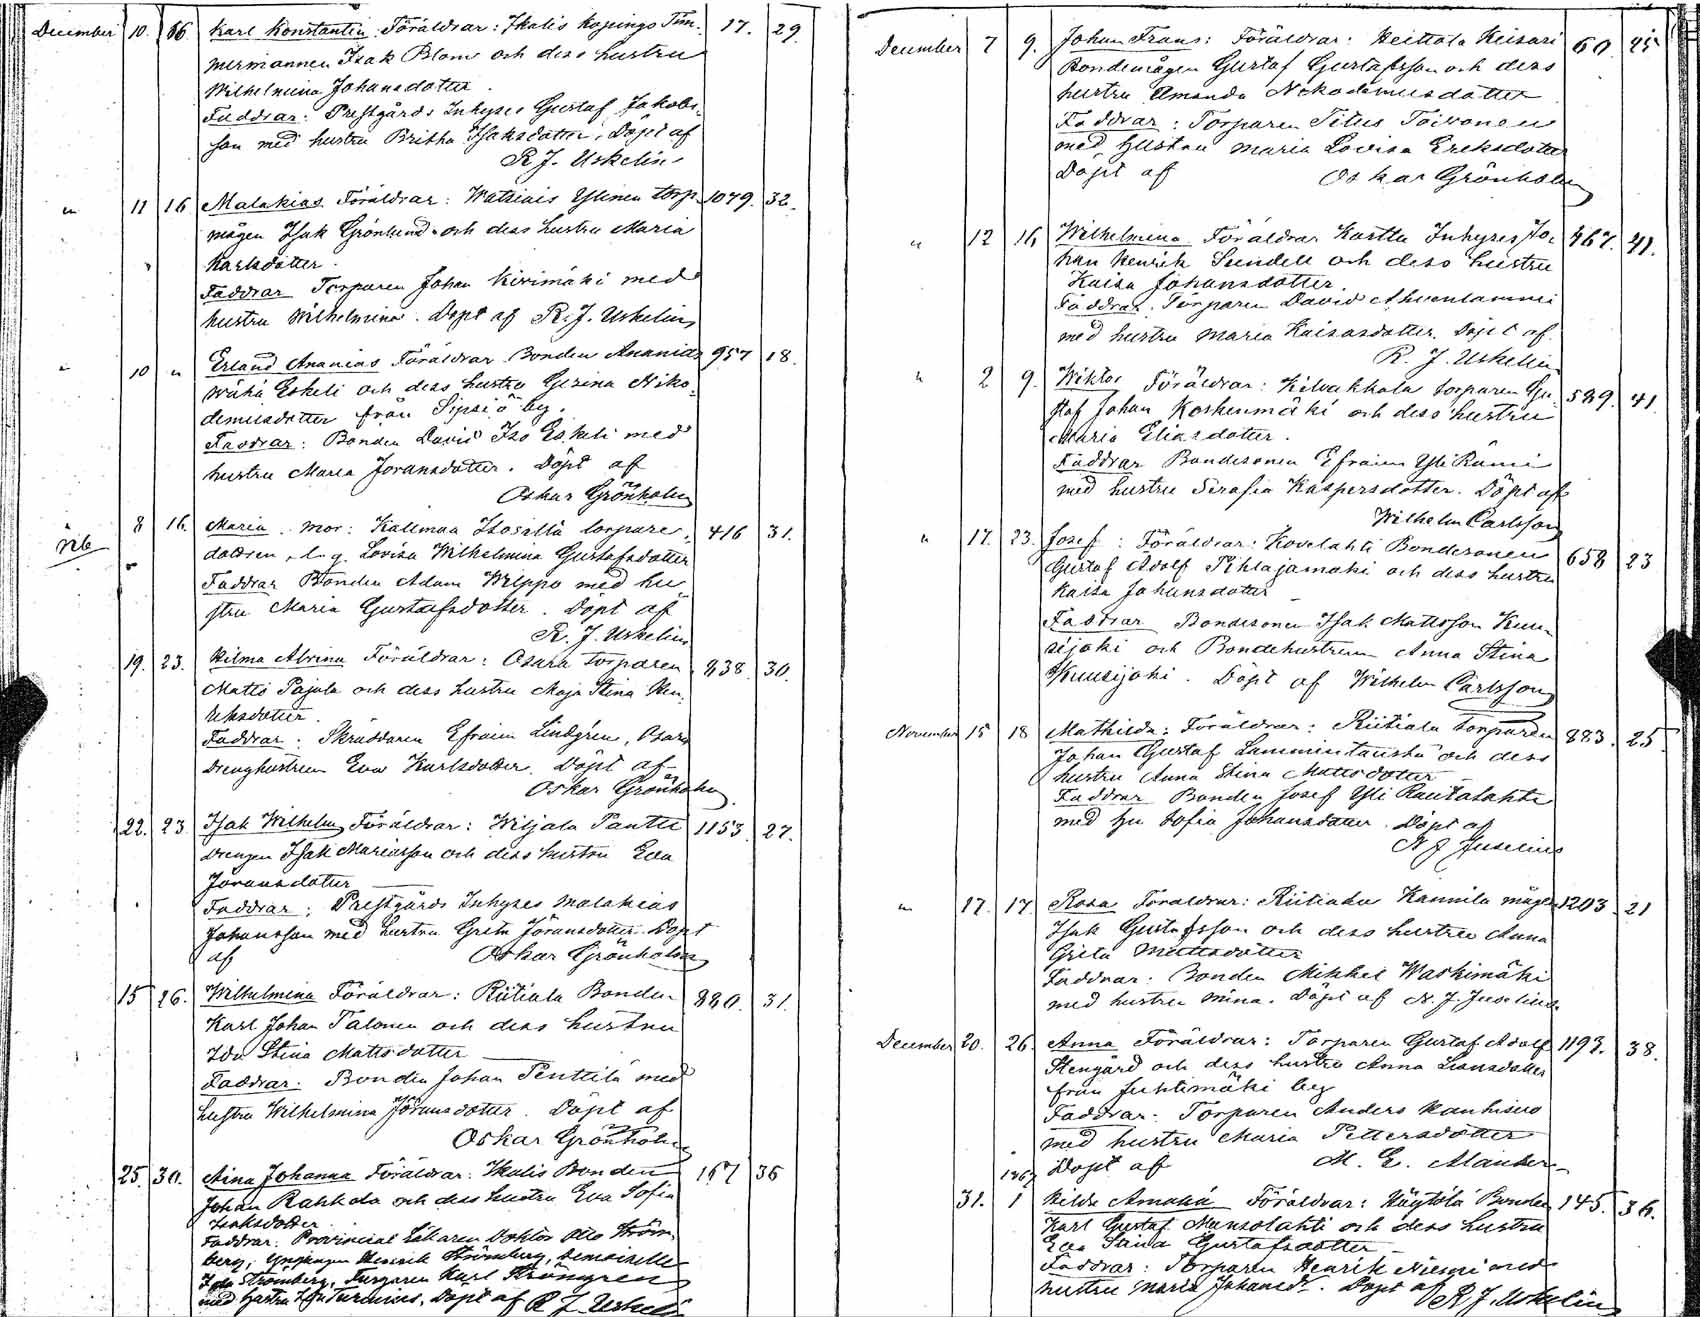 December 10. 16 Karl Konstantin Föräldrar: Ikalis köpings Tim- 17. 29.
mermannen Isak Blom och dess hustru
Wilhelmina Johansdotter.
Faddrar: Prestgårds Inhyses Gustaf Jakobs-
son med hustru Britha Isaksdotter. Döpt af
R. J. Uskelin
" 11 16 Malakias Föräldrar: Watsiais Ylinen torp- 1079. 32.
mågen Isak Grönlund och dess hustru Maria
Karlsdotter.
Faddrar Torparen Johan Kivimäki med
hustru Wilhelmina. Döpt af R. J. Uskelin
" 10 " Erland Ananias Föräldrar Bonden Ananias 957 18.
Wähä Eskeli och dess hustru Gezina Niko-
demusdotter från Sipsiö by.
Faddrar: Bonden David Iso Eskeli med
hustru Maria Joransdotter. Döpt af
Oskar Grönholm
8 16. Maria. mor: Kallmaa Isosillä torpare- 416 31.
dottren, Lovisa Wilhelmina Gustafsdotter
Faddrar Bonden Adam Wippo med hu-
stru Maria Gustafsdotter. Döpt af
R. J. Uskelin
19. 23. Hilma Alvina Föräldrar: Osara torparen 838 30.
Matts Pajula och dess hustru Maja Stina Hen-
riksdotter.
Faddrar. Skräddaren Efraim Lindgren, Osara
Drenghustrun Eva Karlsdotter. Döpt af
Oskar Grönholm
22. 23 Isak Wilhelm Föräldrar: Wiljala Pantti 1153. 27.
Drengen Isak Mariasson och dess hustru Eva
Joransdotter
Faddrar: Prestgårds Inhyses Malakias
Johansson med hustru Greta Joransdotter. Döpt
af Oskar Grönholm
15 26. Wilhelmina Föräldrar: Riitiala Bonden 880. 31.
Karl Johan Talonen och dess hustru
Ida Stina Mattsdotter
Faddrar. Bonden Johan Penttilä med
hustru Wilhelmina Jöransdotter. Döpt af
Oskar Grönholm
25. 30. Aina Johanna Föräldrar: Ikalis Bonden 167 36
Johan Rahkola och dess hustru Eva Sofia
Isaksdotter
Faddrar. Provincial Läkaren Doktor Otto Ström-
berg, Ynglingen Henrik Strömberg, Demoiselle
Ida Strömberg, Karl Strömgren
med hustru Döpt af R. J. Uskelin
December 7 9. Johan Frans: Föräldrar: Heittola Keisari 60. 25
Bondemågen Gustaf Gustafsson och dess
hustru Amanda Nikodemusdotter
Faddrar: Torparen Titus Toivonen
med Hustru Maria Lovisa Eriksdotter
Döpt af Oskar Grönholm
" 12 16 Wilhelmina Föräldrar Karttu Inhyses Jo- 467. 41.
han Henrik Sundell och dess hustru
Kaisa Johansdotter.
Faddrar. Torparen David Ahvenlammi
med hustru Maria Kaisasdotter. Döpt af
R. J. Uskelin
" 2 9. Wiktor Föräldrar: Kilvakkala torparen Gu- 589. 41
staf Johan Koskenmäki och dess hustru
Maria Eliasdotter.
Faddrar Bondesonen Efraim Yli Rämi
med hustru Serafia Kaspersdotter. Döpt af
Wilhelm Carlsson
" 17. 23. Josef: Föräldrar: Kovelahti Bondesonen 658 23
Gustaf Adolf Pihlajamäki och dess hustru
Kaisa Johansdotter
Faddrar Bondesonen Isak Mattsson Kuu-
sijoki och Bondehustrun Anna Stina
Kuusijoki. Döpt af Wilhelm Carlsson
November 15 18 Mathilda: Föräldrar: Riitiala torparen 883. 25
Johan Gustaf Lamminlausta och dess
hustru Anna Stina Mattsdotter
Faddrar Bonden Josef Yli Rautalahti
med hu Sofia Johansdotter. Döpt af
N J Juselius
" 17. 17. Rosa Föräldrar: Riitiala Kannila mågen 1203 21
Isak Gustafsson och dess hustru Anna
Greta Mattsdotter
Faddrar. Bonden Mikkel Waskimäki
med hustru Mina. Döpt af N. J. Juselius
December 20. 26. Anna Föräldrar: Torparen Gustaf Adolf 1193. 38.
Stengård och dess hustru Anna
från Juhtimäki by
Faddrar. Torparen Anders Kauhisuo
med hustru Maria Pettersdotter
Döpt af M. E. Alander
1867
31. 1 Hilda Amanda Föräldrar: Höytölä Bonden 145. 36.
Karl Gustaf Mansolahti och dess hustru
Eva Stina Gustafsdotter
Faddrar: Torparen Henrik Niemi med
hustru Maria Johansd. Döpt af R. J. Uskelin